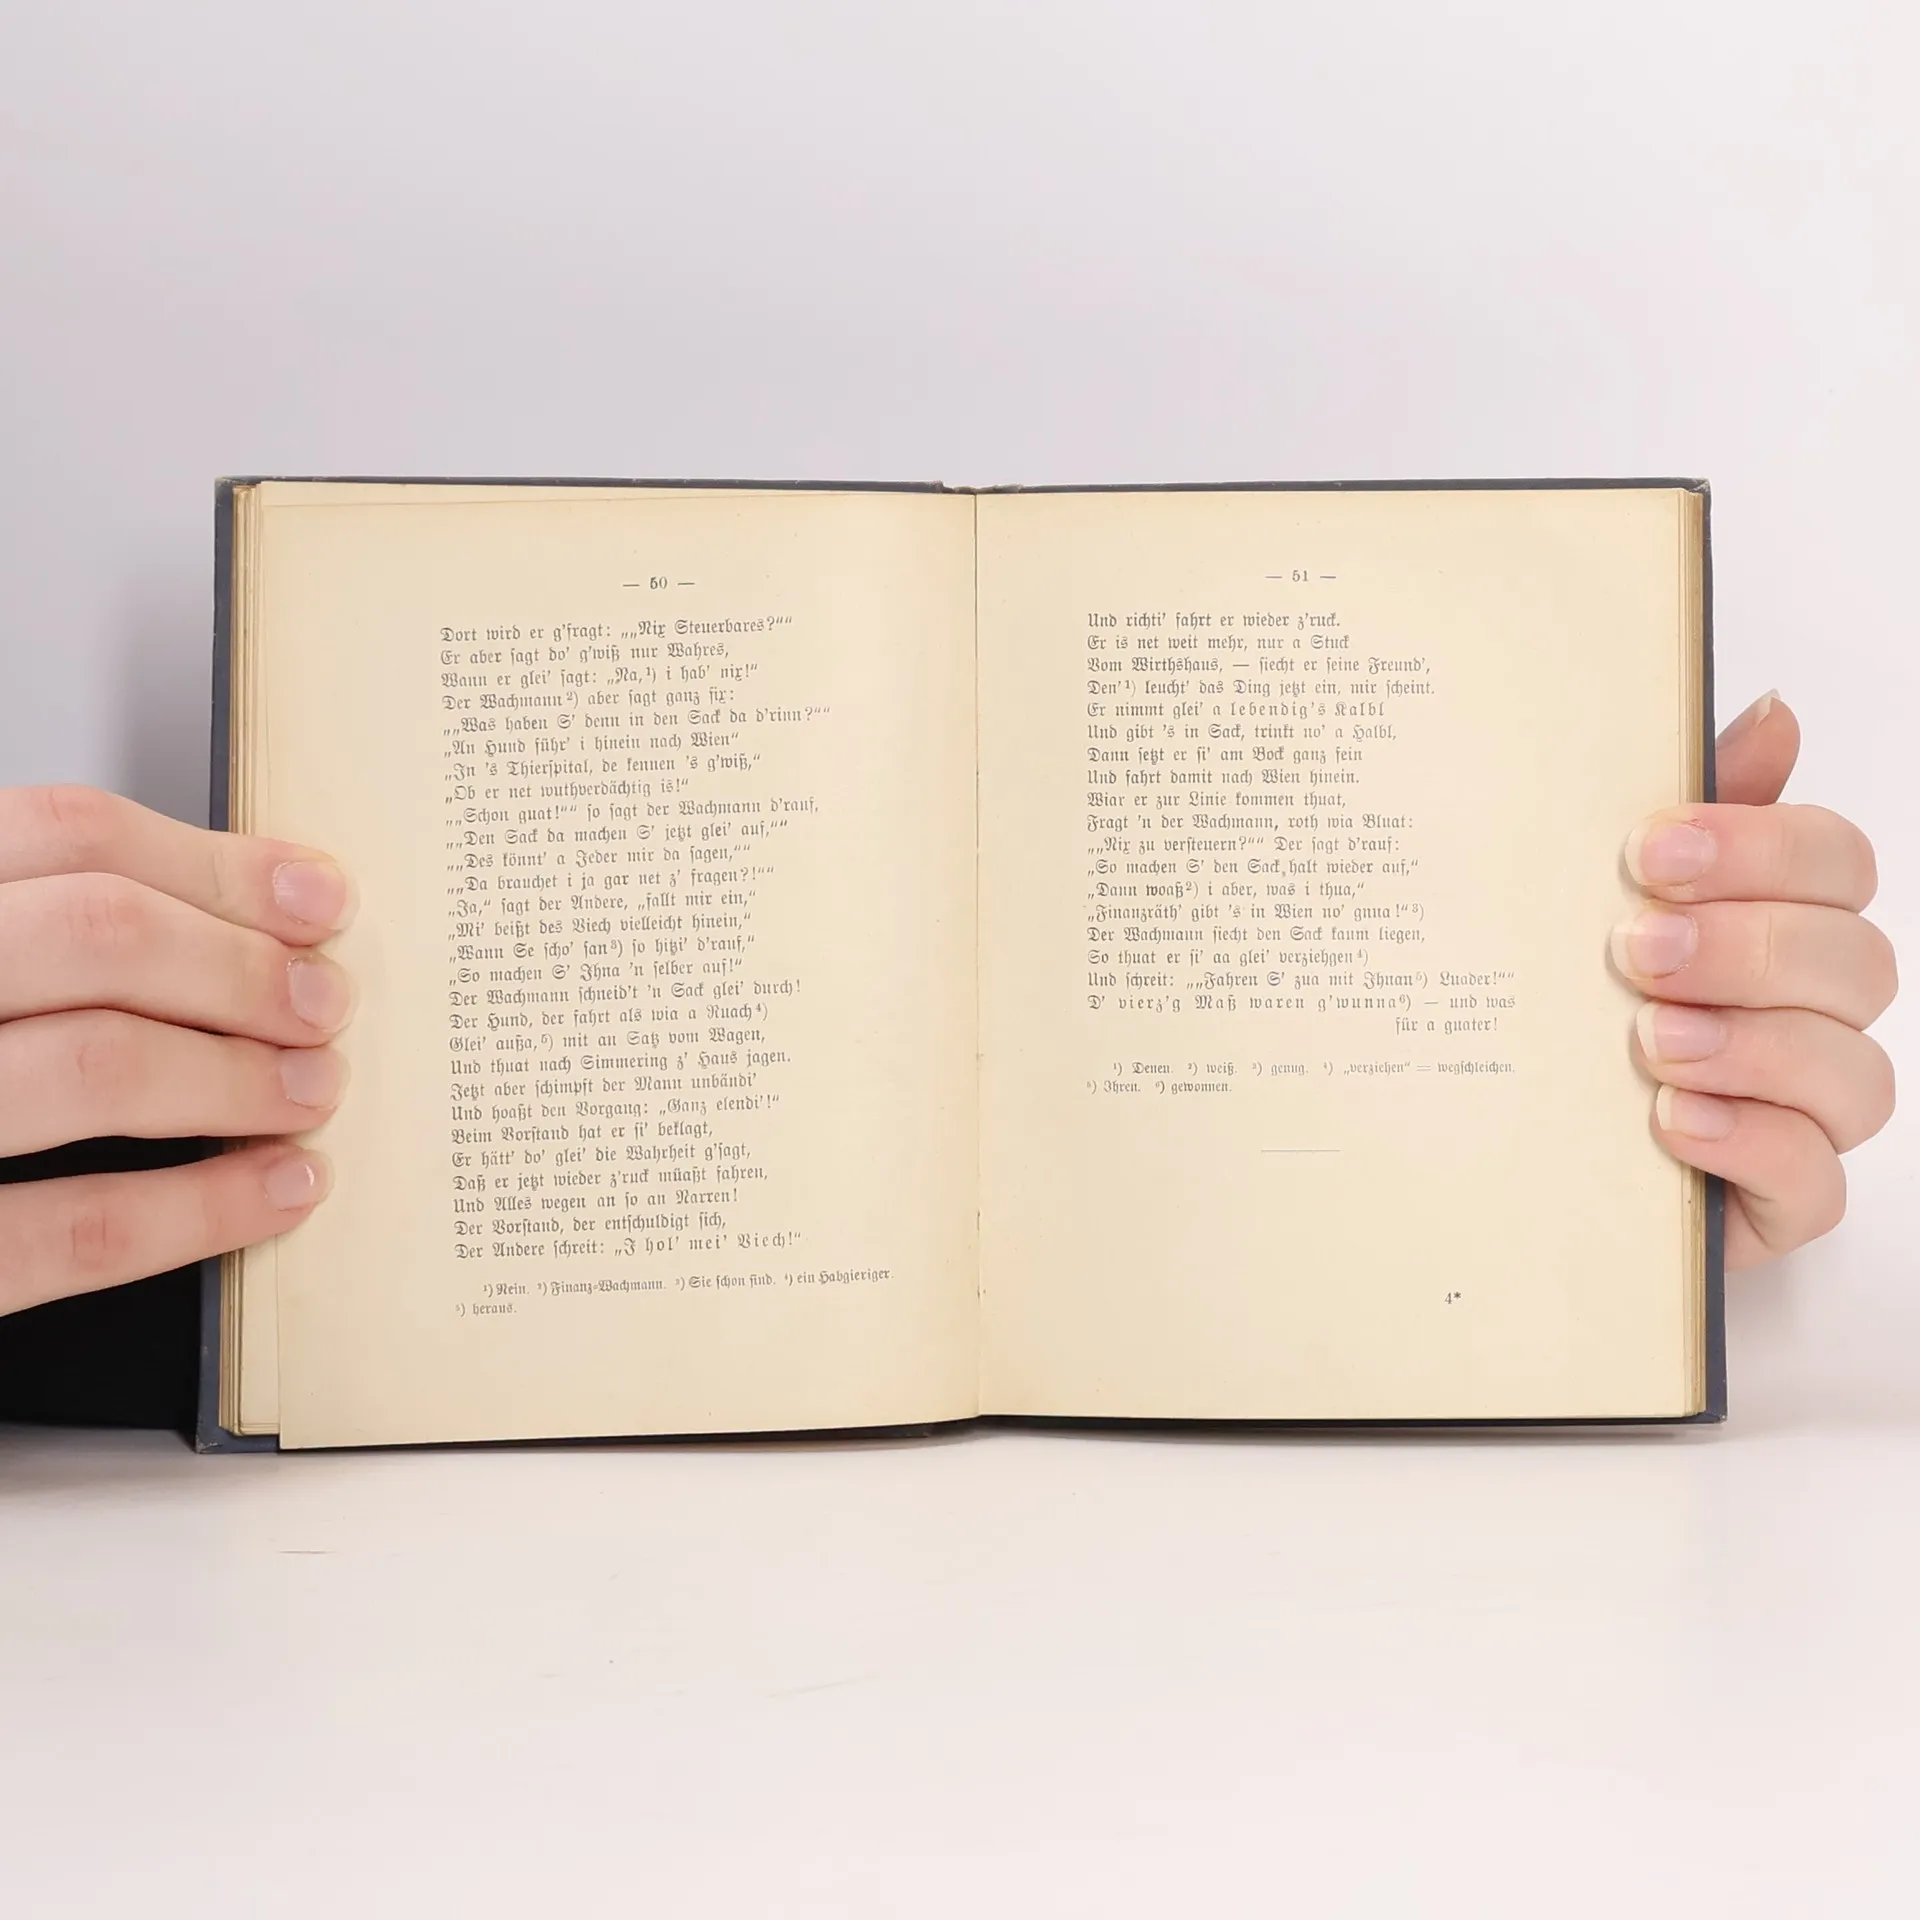 — 50 —
Dort wird er g'fragt: „„Nix Steuerbares?““
Er aber sagt do' g'wiß nur Wahres,
Wann er glei' sagt: „Na,¹) i hab' nix!“
Der Wachmann²) aber sagt ganz fix:
„„Was haben S' denn in den Sack da d'rinn?““
„An Hund führ' i hinein nach Wien“
„In 's Thierspital, de kennen 's g'wiß,“
„Ob er net wuthverdächtig is!“
„„Schon guat!““ so sagt der Wachmann d'rauf,
„„Den Sack da machen S' jetzt glei' auf,““
„„Des könnt' a Jeder mir da sagen,““
„„Da brauchet i ja gar net z' fragen?!““
„Ja,“ sagt der Andere, „fallt mir ein,“
„Mi' beißt des Viech vielleicht hinein,“
„Wann Se scho' san³) so hitzi' d'rauf,“
„So machen S' Ihna 'n selber auf!“
Der Wachmann schneid't 'n Sack glei' durch!
Der Hund, der fahrt als wia a Ruach⁴)
Glei' außa,⁵) mit an Satz vom Wagen,
Und thuat nach Simmering z' Haus jagen.
Jetzt aber schimpft der Mann unbändi'
Und hoaßt den Vorgang: „Ganz elendi'!“
Beim Vorstand hat er si' beklagt,
Er hätt' do' glei' die Wahrheit g'sagt,
Daß er jetzt wieder z'ruck müaßt fahren,
Und Alles wegen an so an Narren!
Der Vorstand, der entschuldigt sich,
Der Andere schreit: „I hol' mei' Viech!“
¹) Nein. ²) Finanz-Wachmann. ³) Sie schon sind. ⁴) ein Habgieriger.
⁵) heraus.
— 51 —
Und richti' fahrt er wieder z'ruck.
Er is net weit mehr, nur a Stuck
Vom Wirthshaus, — siecht er seine Freund',
Den'¹) leucht' das Ding jetzt ein, mir scheint.
Er nimmt glei' a lebendig's Kalbl
Und gibt 's in Sack, trinkt no' a Halbl,
Dann setzt er si' am Bock ganz fein
Und fahrt damit nach Wien hinein.
Wiar er zur Linie kommen thuat,
Fragt 'n der Wachmann, roth wia Bluat:
„„Nix zu versteuern?““ Der sagt d'rauf:
„So machen S' den Sack halt wieder auf,“
„Dann woaß²) i aber, was i thua,“
„Finanzräth' gibt 's in Wien no' gnua!“³)
Der Wachmann siecht den Sack kaum liegen,
So thuat er si' aa glei' verziehgen⁴)
Und schreit: „„Fahren S' zua mit Ihnan⁵) Luader!““
D' vierz'g Maß waren g'wunna⁶) — und was
für a guater!
¹) Denen. ²) weiß. ³) genug. ⁴) „verziehen“ = wegschleichen.
⁵) Ihren. ⁶) gewonnen.
4*